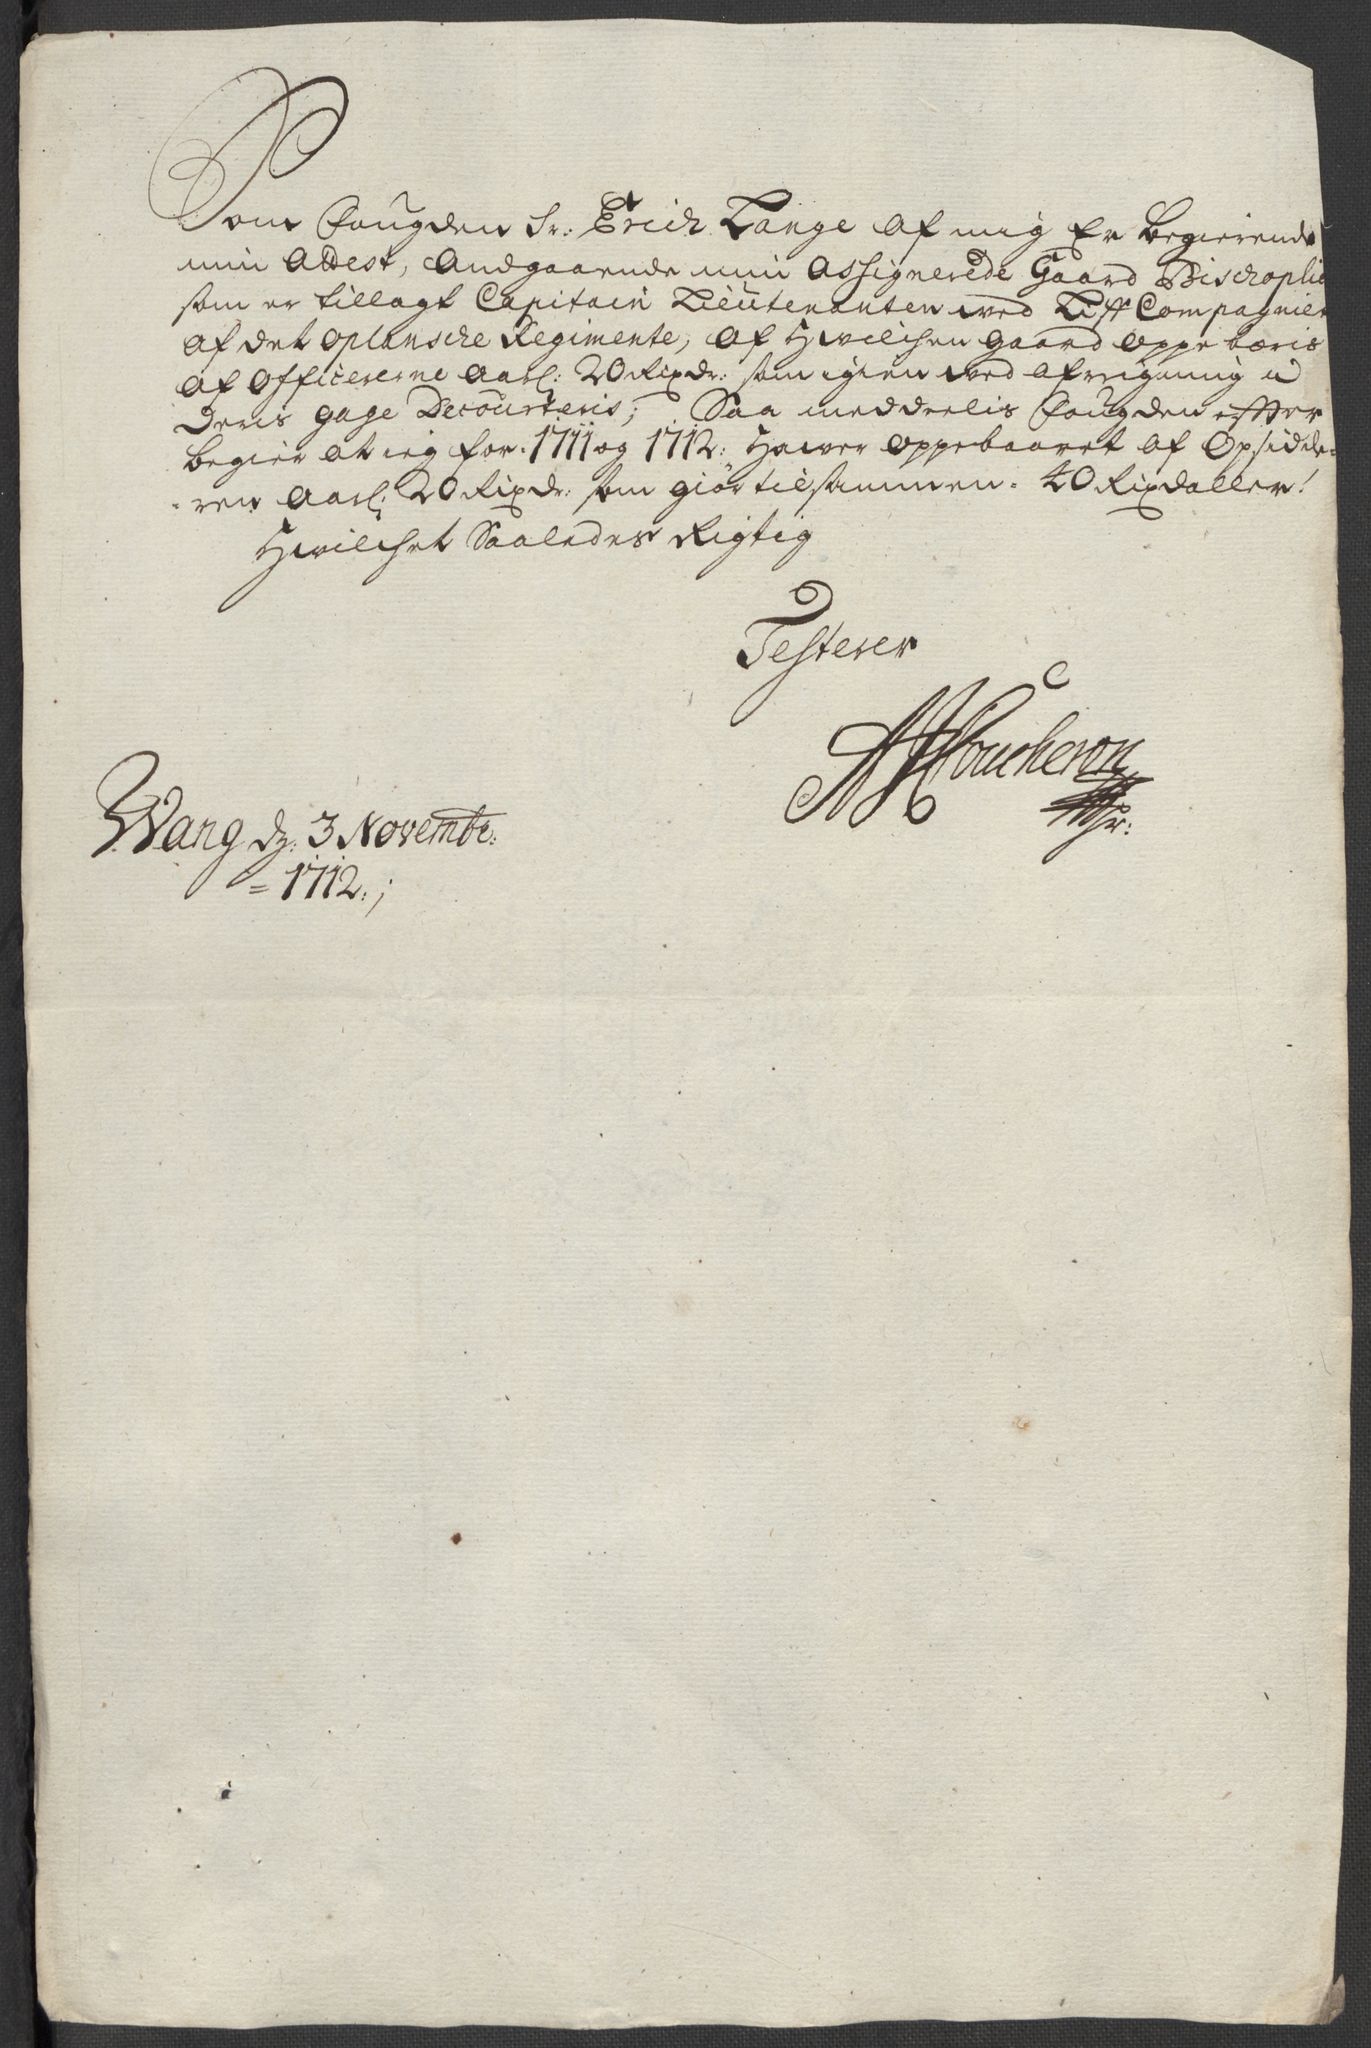 Som Fougden Sr: Erich Lange af mig Er begierende
min Attest, Andgaaende min Assignerede Gaard Bischoplie
som er tillagt Capitain Lieutenanten wed Liff Compagniet
af det oplansche Regimente, af Hwilchen gaard oppebæris
af Officererne Aarl: 20 Rixdr: som igien wed afregning i
deris gage Decourteris; Saa meddeelis Fougden effter
begier at ieg for 1711 og 1712: Hawer oppebaaret af Opsidde=
=ren Aarl: 20 Rixdr: som giør tilsammen. 40 Rixdaller!
Hwilchet Saaledes Rigtig
Testerer
AHCoucheron
Wang dz: 3 Novembr:
= 1712.;